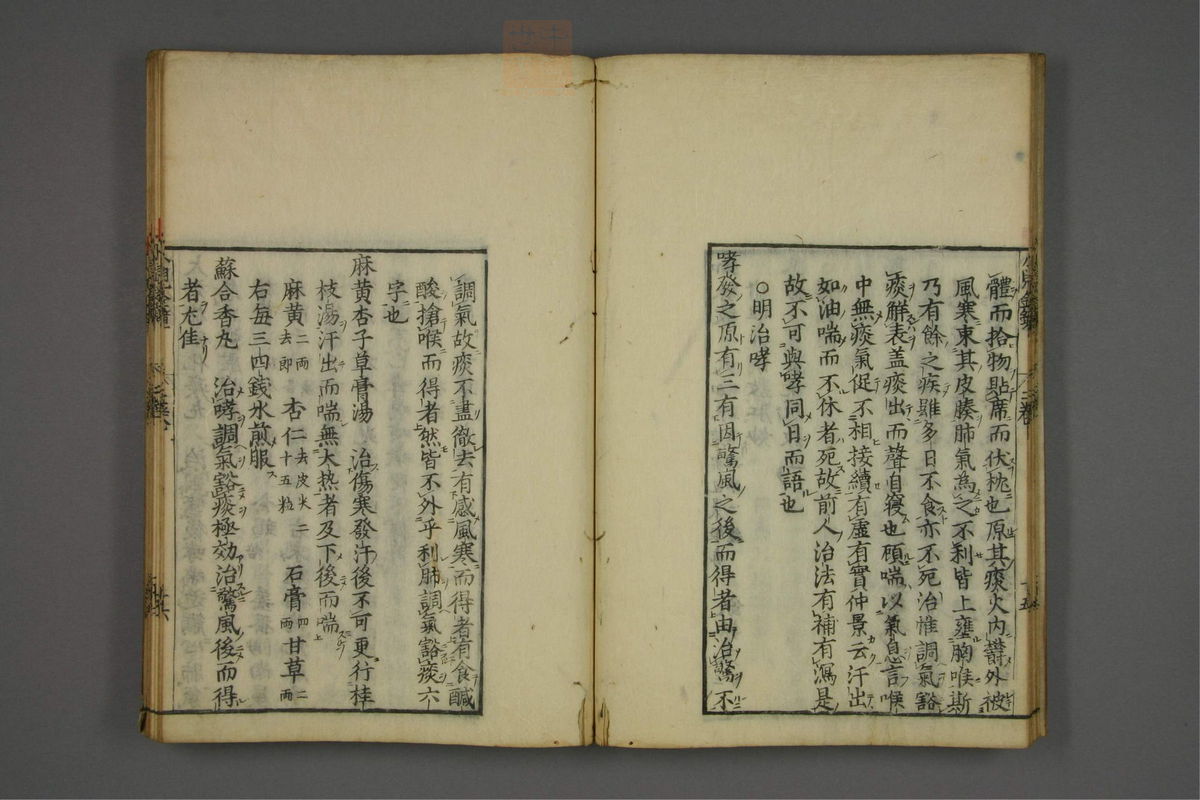 體而拾物點席而伏枕也原其痰火內欝外被
風寒束其皮腠肺氣為之不利皆上壅胸喉斯
乃有餘之疾雖多日不食亦不死治惟調氣豁
痰觧表盖痰出而聲自寝也頑喘以氣息言喉
中無痰氣促不相接續有虛有實仲景云汗出
如油喘而不休者死故前人治法有補有瀉是
故不可與哮同日而語也
○明治哮
哮發之原有三有因驚風之後而得者由治驚不
調氣故痰不盡徹去有感風寒而得者有食醎
酸搶喉而得者然皆不外乎利肺調氣豁痰六
字也
麻黄杏子草膏湯 治傷寒發汗後不可更行桂
枝湯汗出而喘無大热者及下後而喘
麻黄二兩去節 杏仁二去皮尖二十五粒 石膏四兩 甘草二兩
右每三四錢水煎服
蘇合香丸 治哮調氣豁痰極効治驚風後而得
者尢佳